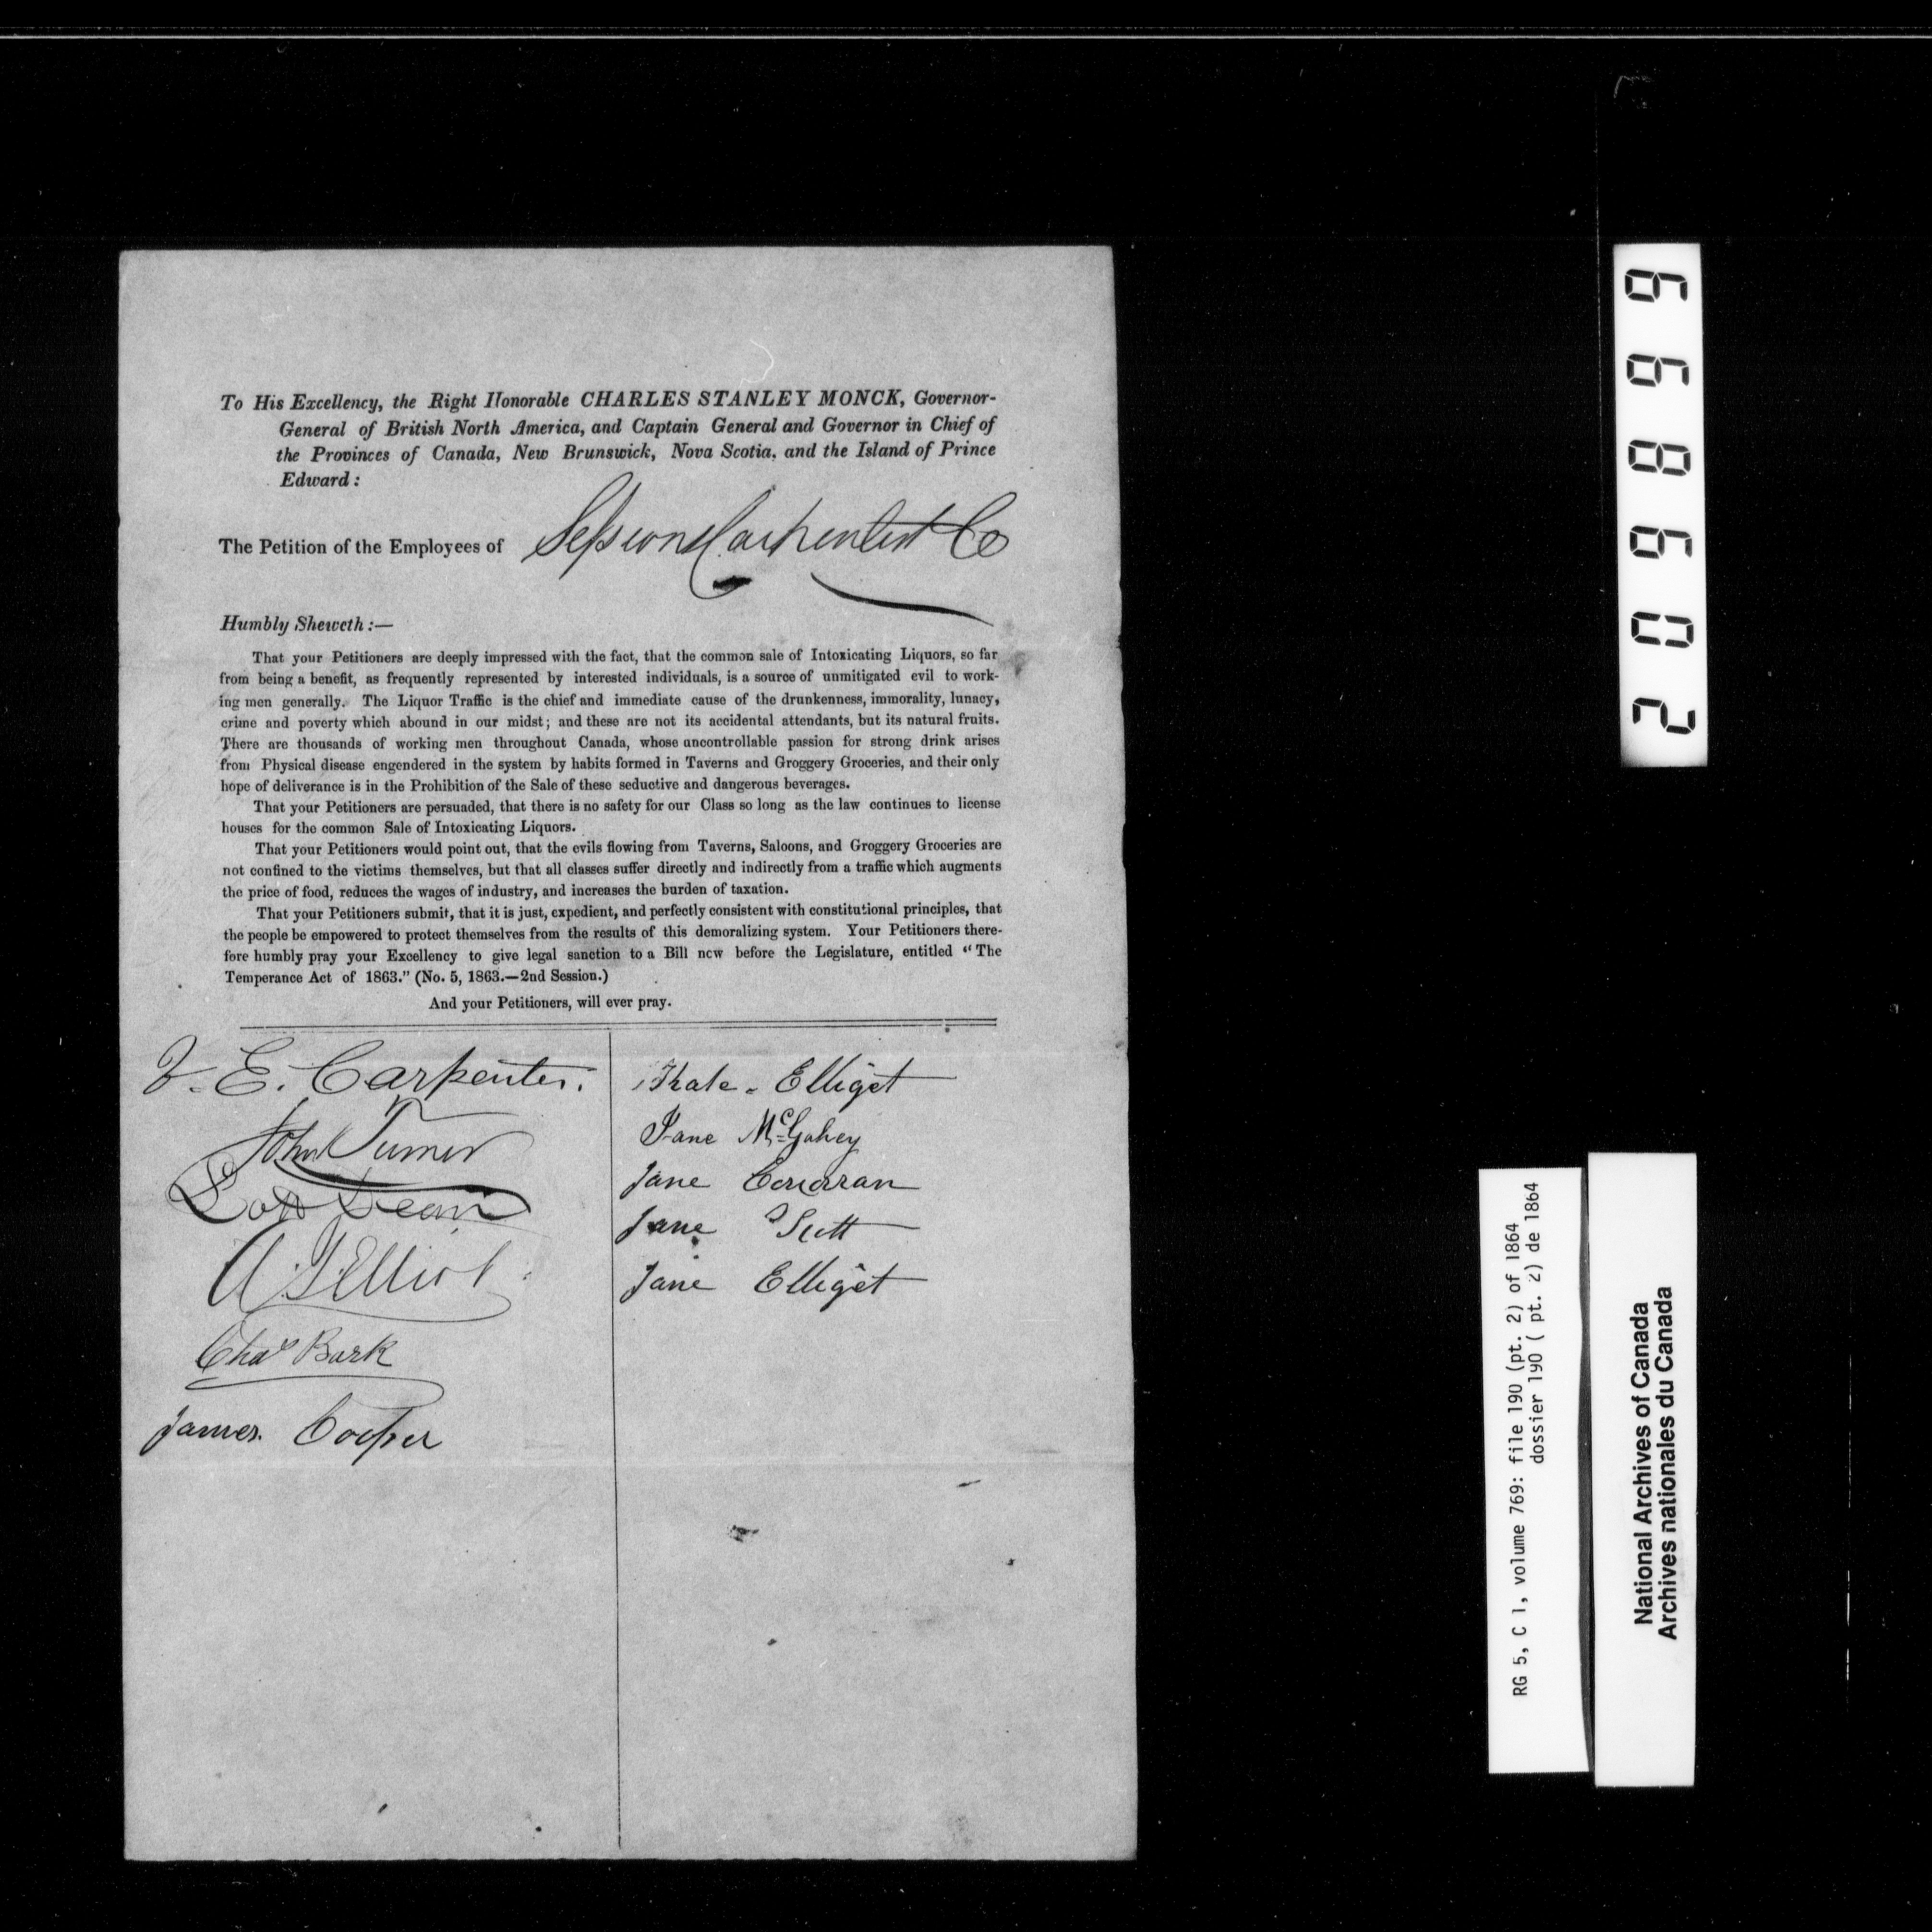 To His Excellency, the Right Honorable CHARLES STANLEY MONCK, Governor-
General of British North America, and Captain General and Governor in Chief of
the Provinces of Canada, New Brunswick, Nova Scotia, and the Island of Prince
Edward:
The Petition of the Employees of Sessions Carpenter & Co
Humbly Sheweth:—
That your Petitioners are deeply impressed with the fact, that the common sale of Intoxicating Liquors, so far
from being a benefit, as frequently represented by interested individuals, is a source of unmitigated evil to work-
ing men generally. The Liquor Traffic is the chief and immediate cause of the drunkenness, immorality, lunacy,
crime and poverty which abound in our midst; and these are not its accidental attendants, but its natural fruits.
There are thousands of working men throughout Canada, whose uncontrollable passion for strong drink arises
from Physical disease engendered in the system by habits formed in Taverns and Groggery Groceries, and their only
hope of deliverance is in the Prohibition of the Sale of these seductive and dangerous beverages.
That your Petitioners are persuaded, that there is no safety for our Class so long as the law continues to license
houses for the common Sale of Intoxicating Liquors.
That your Petitioners would point out, that the evils flowing from Taverns, Saloons, and Groggery Groceries are
not confined to the victims themselves, but that all classes suffer directly and indirectly from a traffic which augments
the price of food, reduces the wages of industry, and increases the burden of taxation.
That your Petitioners submit, that it is just, expedient, and perfectly consistent with constitutional principles, that
the people be empowered to protect themselves from the results of this demoralizing system. Your Petitioners there-
fore humbly pray your Excellency to give legal sanction to a Bill now before the Legislature, entitled "The
Temperance Act of 1863." (No. 5, 1863.—2nd Session.)
And your Petitioners, will ever pray.
E. Carpenter.
John Turner
Dean
A. Elliot
Chas Bark
James. Cooper
Kate Elliget
Jane McGahey
Jane Corcoran
Jane Scott
Jane Elliget
206899
RG 5, C 1, volume 769: file 190 (pt. 2) of 1864
dossier 190 ( pt. 2) de 1864
National Archives of Canada
Archives nationales du Canada